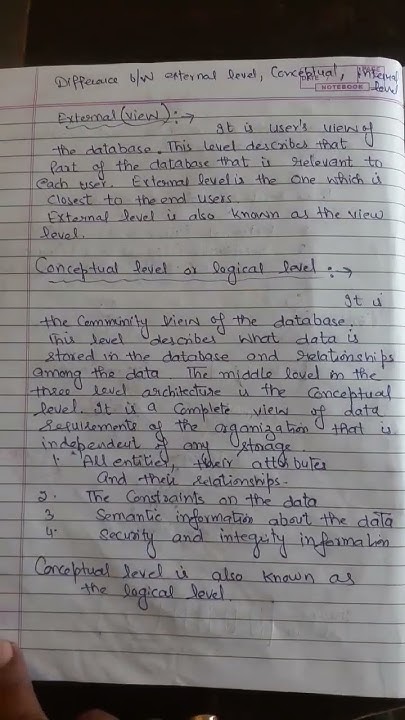 Difference b/w external level, Conceptual, Internal level
NOTEBOOK
External (view) :→
It is user's view of
the database. This level describes that
Part of the database that is relevant to
each user. External level is the one which is
closest to the end users.
External level is also known as the view
level.
Conceptual level or logical level :→
It is
the Community view of the database.
This level describes what data is
stored in the database and relationships
among the data The middle level in the
three level architecture is the Conceptual
level. It is a Complete view of data
requirements of the organization that is
independent of any storage.
1. All entities, their attributes
and their relationships.
2. The Constraints on the data
3 Semantic information about the data
4. Security and integrity information
Conceptual level is also known as
the logical level.